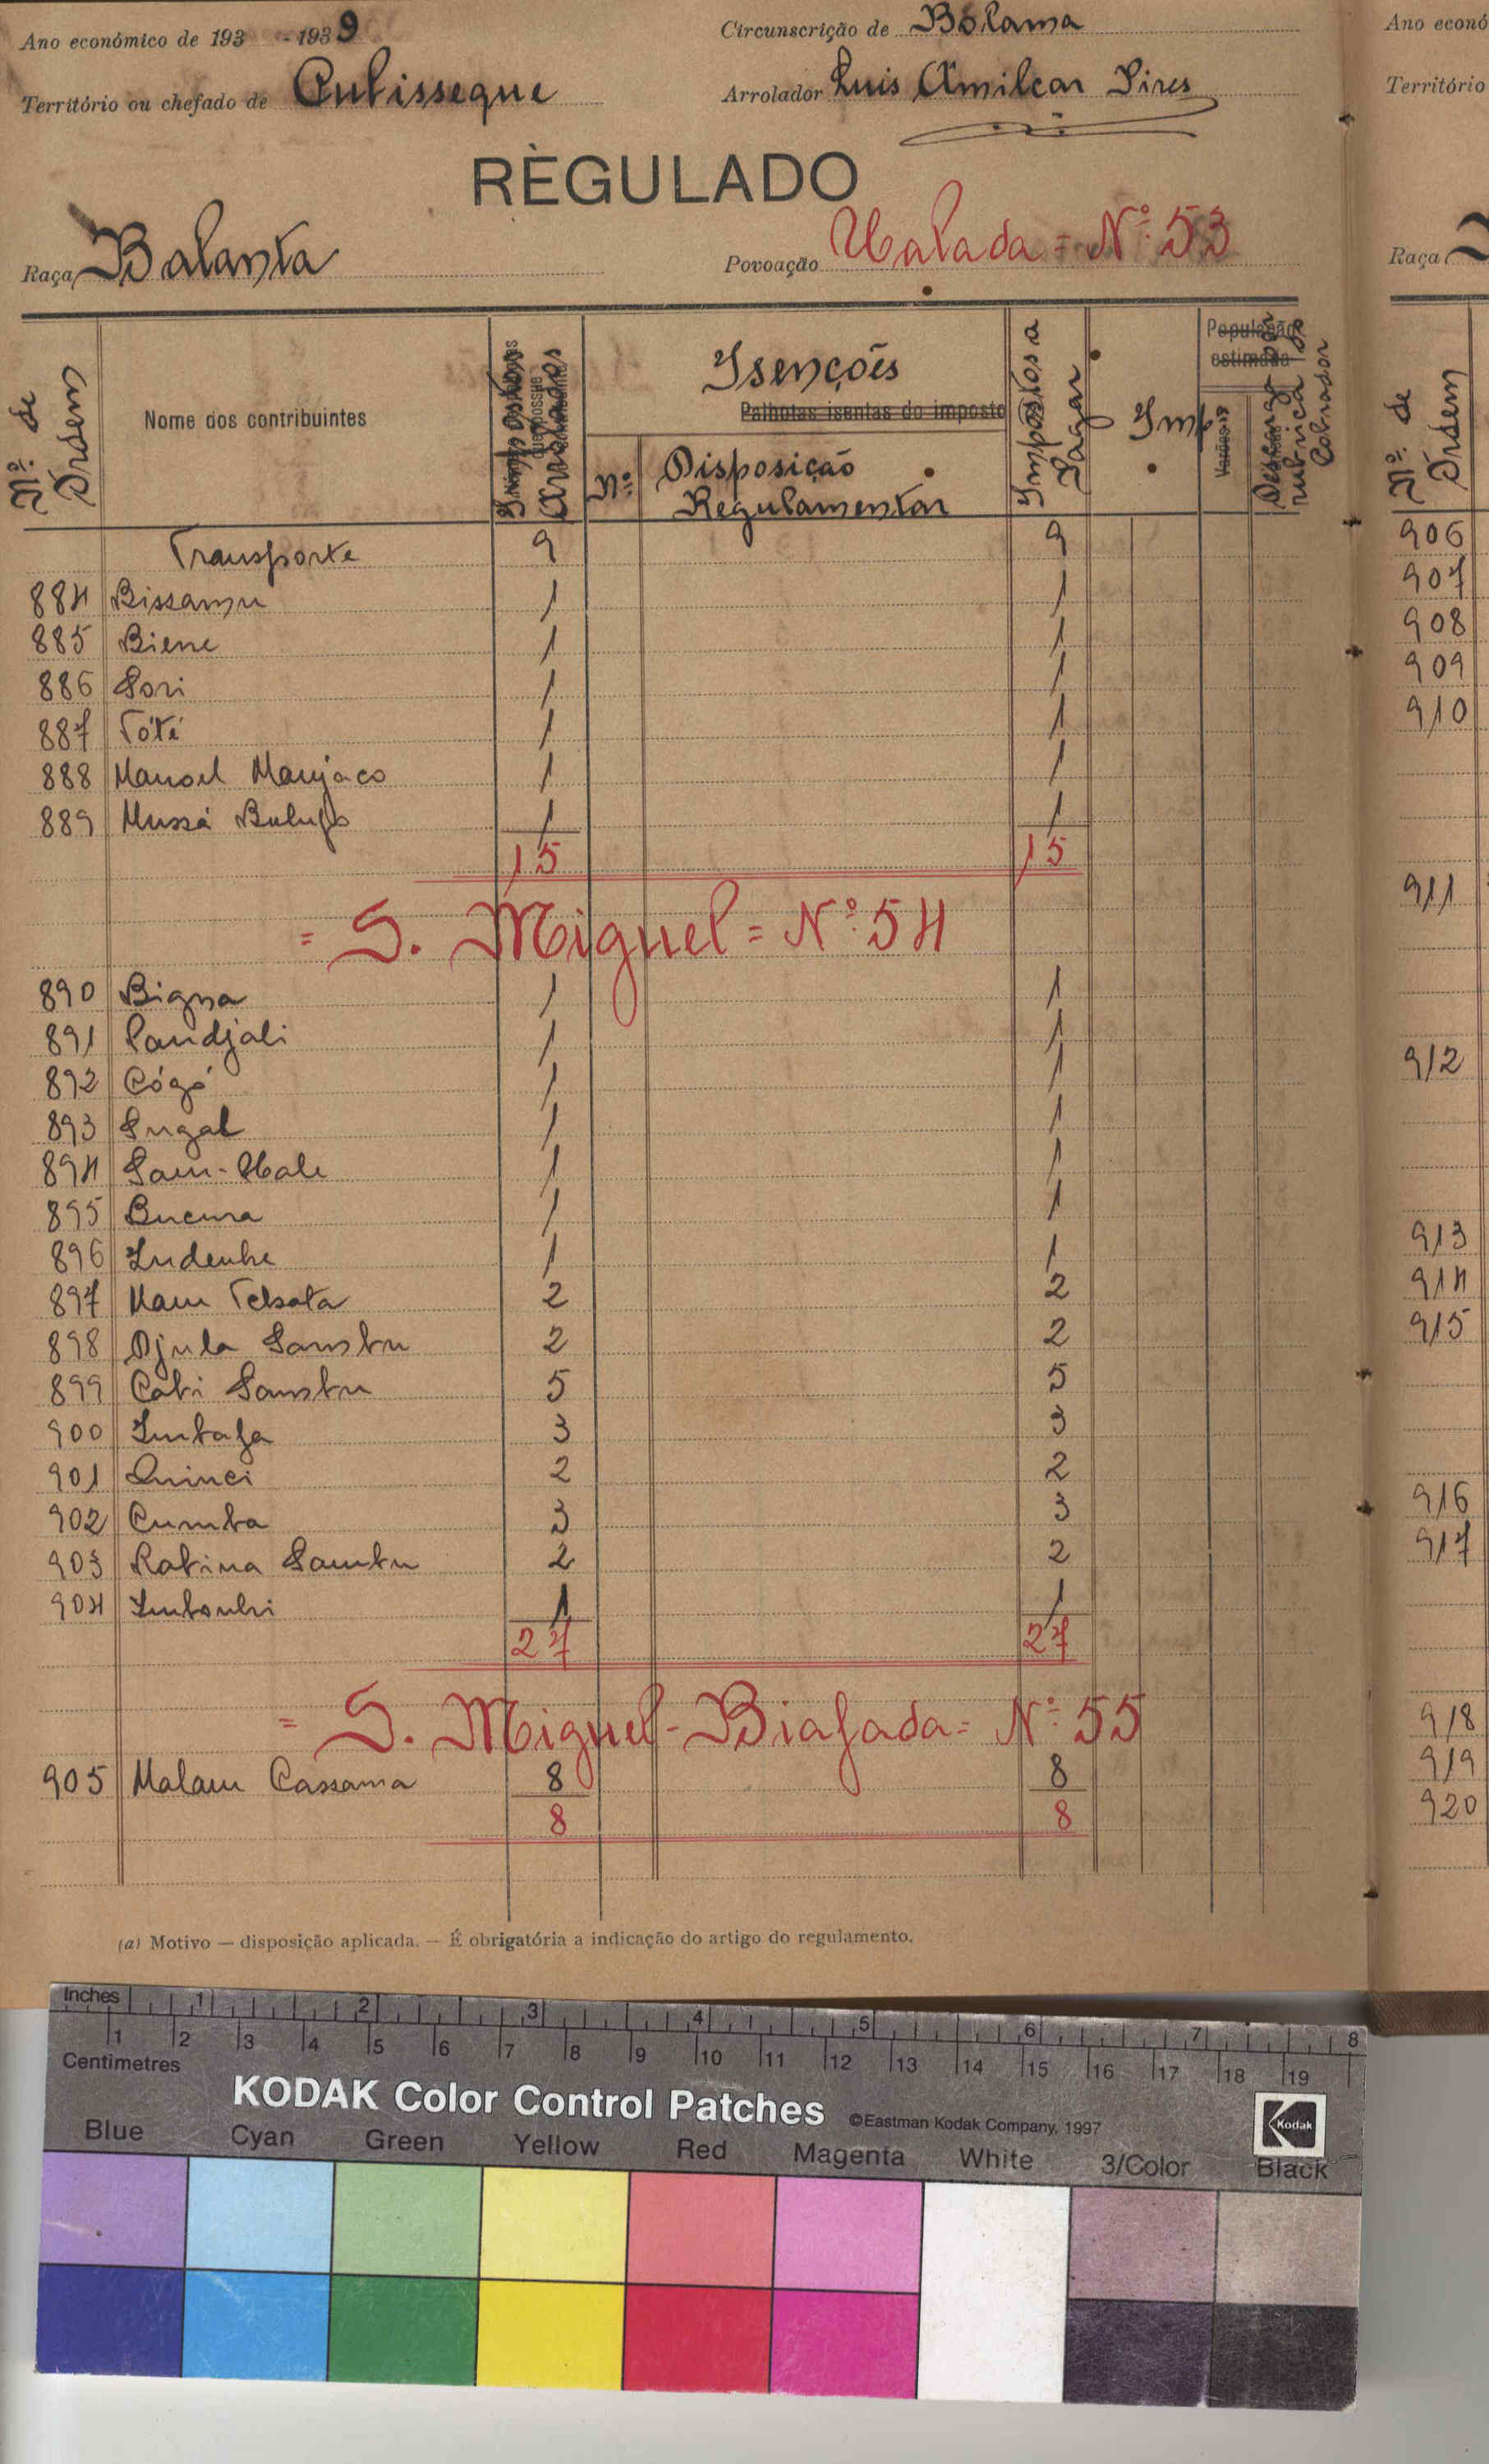 Ano económico de 193 - 1939
Circunscrição de Bolama
Território ou chefado de Cubisseque
Arrolador Luis Amilcar Pires
RÈGULADO
Raça Balanta
Povoação Nalada = Nº 53
Nº de Ordem
Nome dos contribuintes
Impostos Arrolados
Isenções
Palhotas isentas do imposto
Nº
Disposição Regulamentar
Impostos a Pagar
Imp.
População estimada
Varões
Descarga por rubrica do Cobrador
Transporte 9 9
884 Bissamu 1 1
885 Biene 1 1
886 Sori 1 1
887 Tóté 1 1
888 Manoel Manjaco 1 1
889 Mussá Bulufo 1 1
15 15
= S. Miguel = Nº 54
890 Bigna 1 1
891 Pandjali 1 1
892 Cógó 1 1
893 Sugal 1 1
894 1 1
895 Bucura 1 1
896 Indenhe 1 1
897 2 2
898 Djula Sambu 2 2
899 Cabi Sambu 5 5
900 Imbafa 3 3
901 Quinci 2 2
902 Cumba 3 3
903 Rabina Sambu 2 2
904 Imbunhi 1 1
27 27
= S. Miguel - Biafada = Nº 55
905 Malam Cassama 8 8
8 8
(a) Motivo — disposição aplicada. — É obrigatória a indicação do artigo do regulamento.
Ano econó
Território
Raça
Nº de Ordem
906
907
908
909
910
911
912
913
914
915
916
917
918
919
920
Inches 1 2 3 4 5 6 7 8
1 2 3 4 5 6 7 8 9 10 11 12 13 14 15 16 17 18 19
Centimetres
KODAK Color Control Patches ©Eastman Kodak Company, 1997 Kodak
Blue Cyan Green Yellow Red Magenta White 3/Color Black